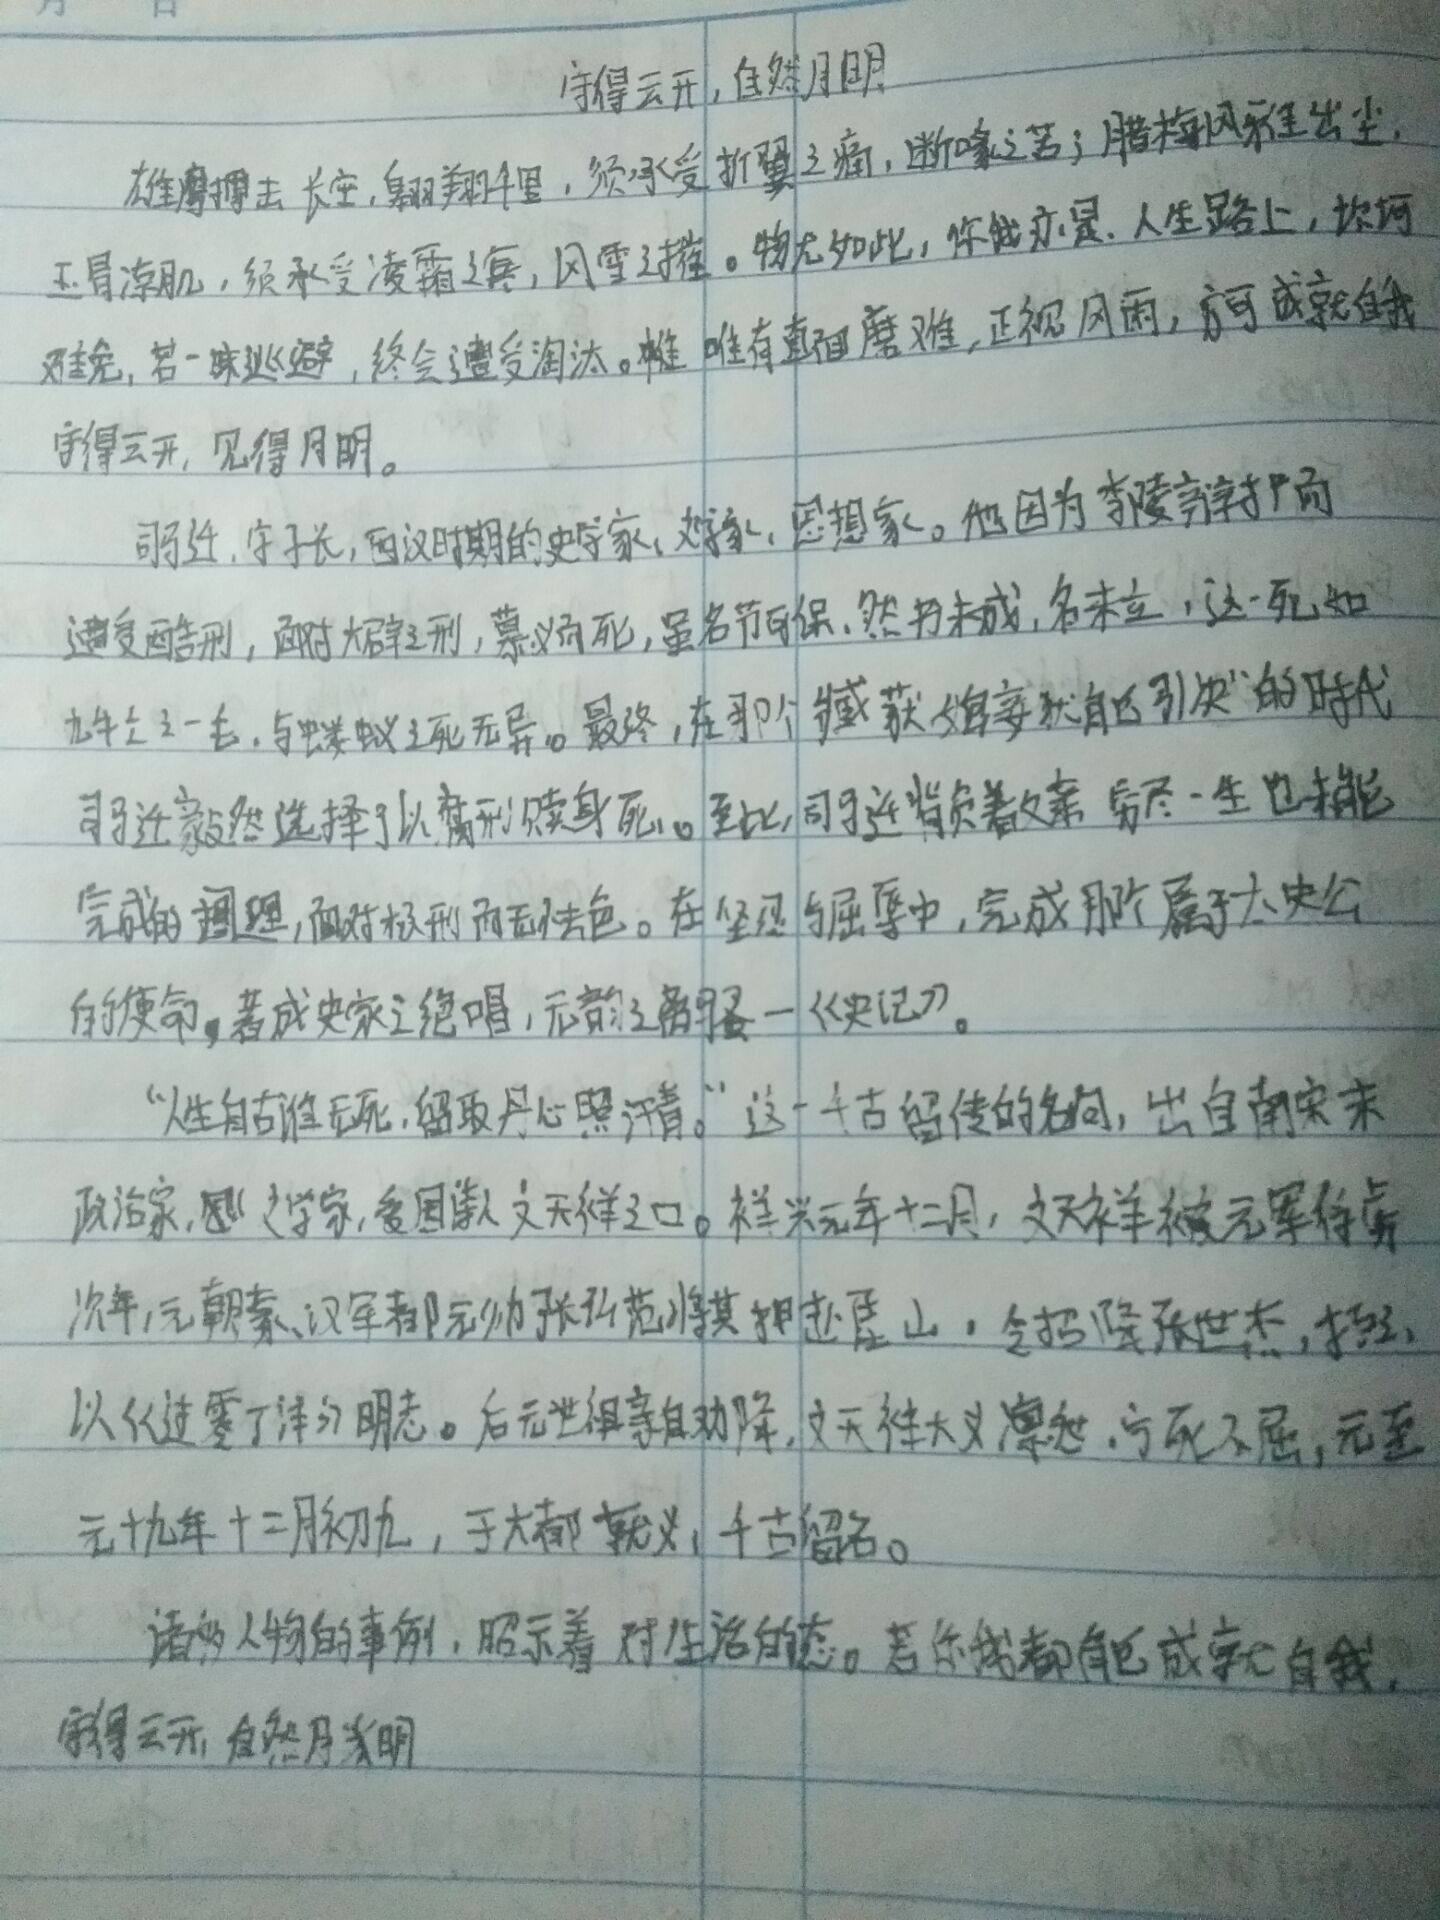 月 日
守得云开，自然月明
雄鹰搏击长空，翱翔千里，须承受折翼之痛，断喙之苦；腊梅风采出尘，
玉骨凉肌，须承受凌霜之寒，风雪之摧。物尤如此，你我亦是。人生路上，坎坷
难免，若一味逃避，终会遭受淘汰。唯有直面磨难，正视风雨，方可成就自我
守得云开，见得月明。
司马迁，字子长，西汉时期的史学家、文学家、思想家。他因为李陵辩护而
遭受酷刑，面对大辟之刑，慕义而死，虽名节可保，然书未成，名未立，这一死如
九牛亡一毛，与蝼蚁之死无异。最终，在那个"臧获婢妾犹自己引决"的时代
司马迁毅然选择了以腐刑赎身死。至此，司马迁背负着父亲穷尽一生也未能
完成的理想，面对极刑而无怯色。在坚忍与屈辱中，完成那个属于太史公
的使命。著成史家之绝唱，无韵之离骚—《史记》。
"人生自古谁无死，留取丹心照汗青。"这一千古留传的名句，出自南宋末
政治家，文学家，爱国诗人文天祥之口。祥兴元年十二月，文天祥被元军俘虏
次年，元朝蒙、汉军都元帅张弘范将其押赴崖山，令招降张世杰，拒之，
以《过零丁洋》明志。后元世祖亲自劝降，文天祥大义凛然，宁死不屈，元至
元十九年十二月初九，于大都就义，千古留名。
诸多人物的事例，昭示着对生活的态。若你我都能成就自我，
守得云开，自然月明